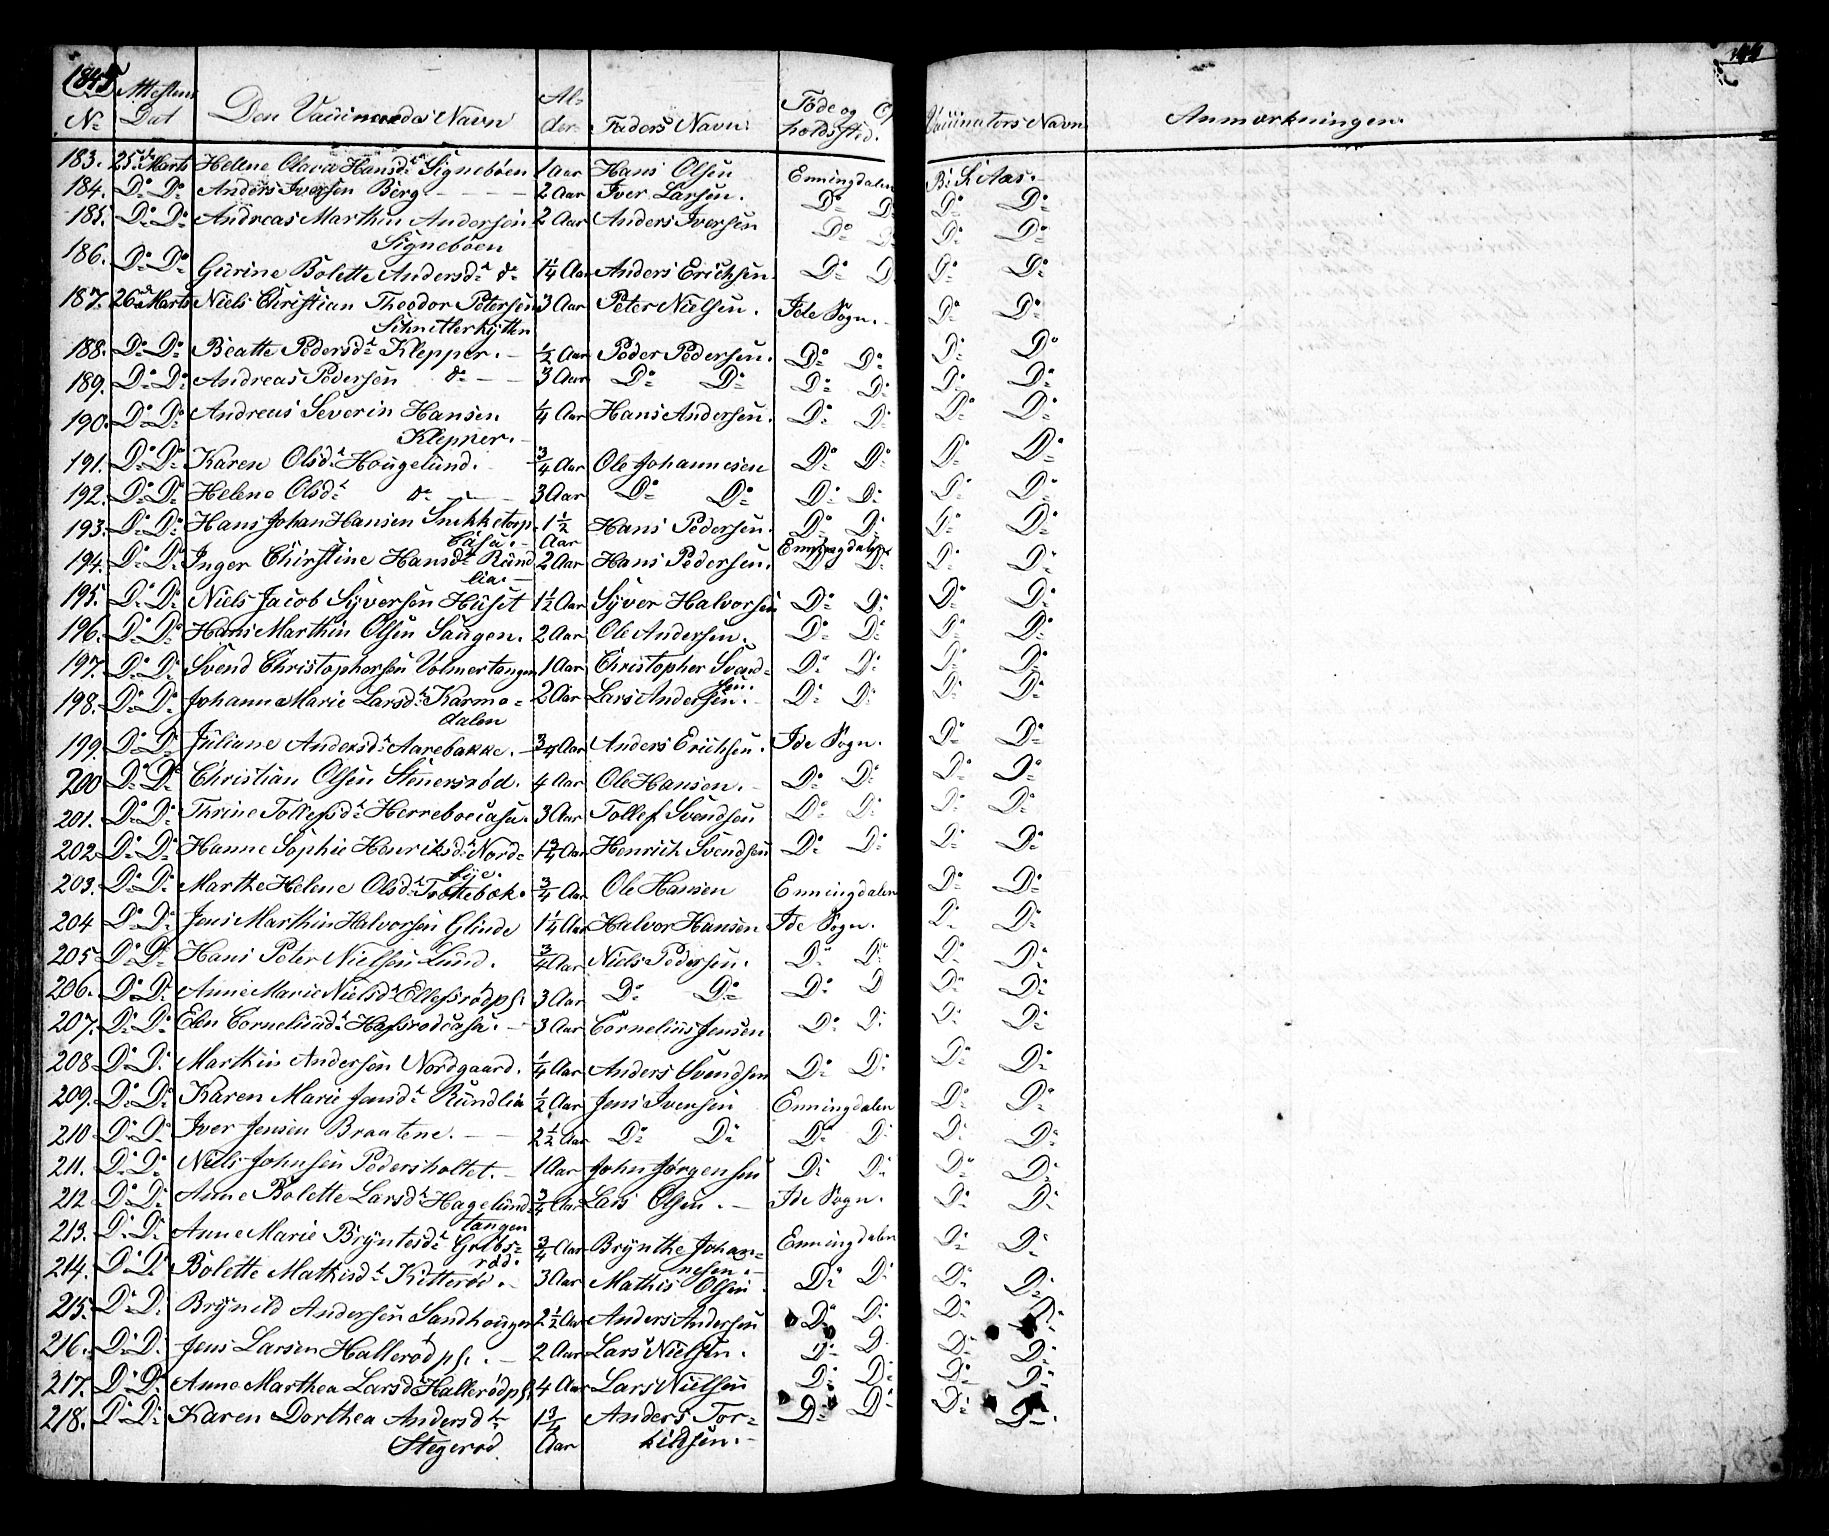 1845
No Attestens Dat Den Vaccineredes Navn Alder Faders Navn Føde og Opholdssted. Vaccinators Navn Anmærkninger
183. 25de Marts Helene Olava Hansdt Signebøen 1 Aar Hans Olsen Enningdalen B. S. Aas.
184. Do Do Anders Iversen Berg 2 Aar Iver Larsen. Do Do Do Do
185. Do Do Andreas Marthin Andersen 2 Aar Anders Iversen Do Do Do Do
Signebøen
186. Do Do Gurine Bolette Andersdt do 1¼ Aar Anders Erichsen Do Do Do Do
187. 26de Marts Niels Christian Theodor Petersen 3 Aar Peter Nielsen. Ide Sogn. Do Do
Schnitlerhytten
188. Do Do Beatte Pedersdt Klepper. ½ Aar Peder Pedersen. Do Do Do Do
189. Do Do Andreas Pedersen do 3 Aar Do Do Do Do Do Do
190. Do Do Andreas Severin Hansen ¼ Aar Hans Andersen. Do Do Do Do
Klepper.
191. Do Do Karen Olsdt Hougelund. ¾ Aar Ole Johannesen Do Do Do Do
192. Do Do Helene Olsdt do 3 Aar Do Do Do Do Do Do
193. Do Do Hans Johan Hansen Snekketorp 1½ Aar Hans Pedersen. Do Do Do Do
casa.
194. Do Do Inger Chirstine Hansdt Rund 2 Aar Hans Pedersen. Enningdalen Do Do
lia.
195. Do Do Niels Jacob Syversen Huset 1½ Aar Syver Halvorsen Do Do Do Do
196. Do Do Hans Marthin Olsen Saugen. 2 Aar Ole Andersen. Do Do Do Do
197. Do Do Svend Christophersen Volmertangen 1 Aar Christopher Svend- Do Do Do Do
sen.
198. Do Do Johanne Marie Larsdt Karmo- 2 Aar Lars Andersen. Do Do Do Do
dalen
199. Do Do Juliane Andersdt Aarebakke. ¾ Aar Anders Erichsen. Ide Sogn. Do Do
200 Do Do Christian Olsen Stenersrød. 4 Aar Ole Hansen. Do Do Do Do
201. Do Do Thrine Tollefsdt Herreboecasa. 3 Aar Tollef Svendsen Do Do Do Do
202 Do Do Hanne Sophie Henriksdt Nord- 1¾ Aar Henrich Svendsen Do Do Do Do
bye.
203. Do Do Marthe Helene Olsdt Trottebæk. ¾ Aar Ole Hansen Enningdalen Do Do
204 Do Do Jens Marthin Halvorsen Glinde 1¼ Aar Halvor Hansen Ide Sogn. Do Do
205 Do Do Hans Peter Nielsen Lund. ¾ Aar Niels Pedersen. Do Do Do Do
206. Do Do Anne Marie Nielsdt Ellefsrødpl. 3 Aar Do Do Do D Do Do
207. Do Do Elen Corneliusdt Hafsrødcasa. 3 Aar Cornelius Jensen Do Do Do Do
208 Do Do Marthin Andersen Nordgaard. ¼ Aar Anders Svendsen Do Do Do Do
209. Do Do Karen Marie Jensdt Rundlia ½ Aar Jens Iversen Enningdalen Do Do
210 Do Do Iver Jensen Braatene. 2½ Aar Do Do Do Do Do Do
211. Do Do Niels Johnsen Pedersholtet. 1 Aar John Jørgensen Do Do Do Do
212 Do Do Anne Bolette Larsdt Hagelund- ¾ Aar Lars Olsen. Ide Sogn. Do Do
tangen
213. Do Do Anne Marie Bryntesdt Gribs- ¾ Aar Brynthe Johan- Enningdalen Do Do
rød. nesen.
214. Do Do Bolette Mathisdt Kitterød. 3 Aar Mathis Olsen Do Do Do Do
215. Do Do Brynild Andersen Sandhougen 2½ Aar Anders Andersen Do Do Do Do
216. Do Do Jens Larsen Hallerød pl. 2 Aar Lars Nielsen. Do Do Do Do
217. Do Do Anne Marthea Larsdt Hallerødpl. 4 Aar Lars Nielsen Do Do Do Do
218. Do Do Karen Dorthea Andersdt 1¾ Aar Anders Tor- Do Do Do Do
Stegerød kildsen.